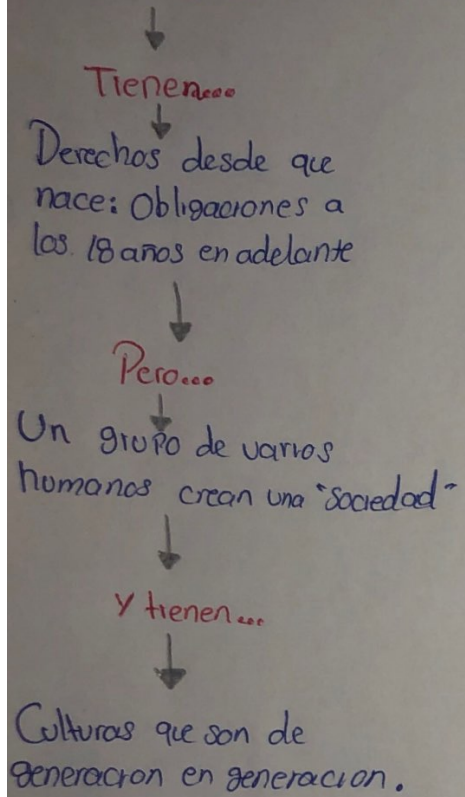 Tienen...
Derechos desde que
nace: Obligaciones a
los 18 años en adelante
Pero...
Un grupo de varios
humanos crean una "sociedad"
y tienen...
Culturas que son de
generacion en generacion.